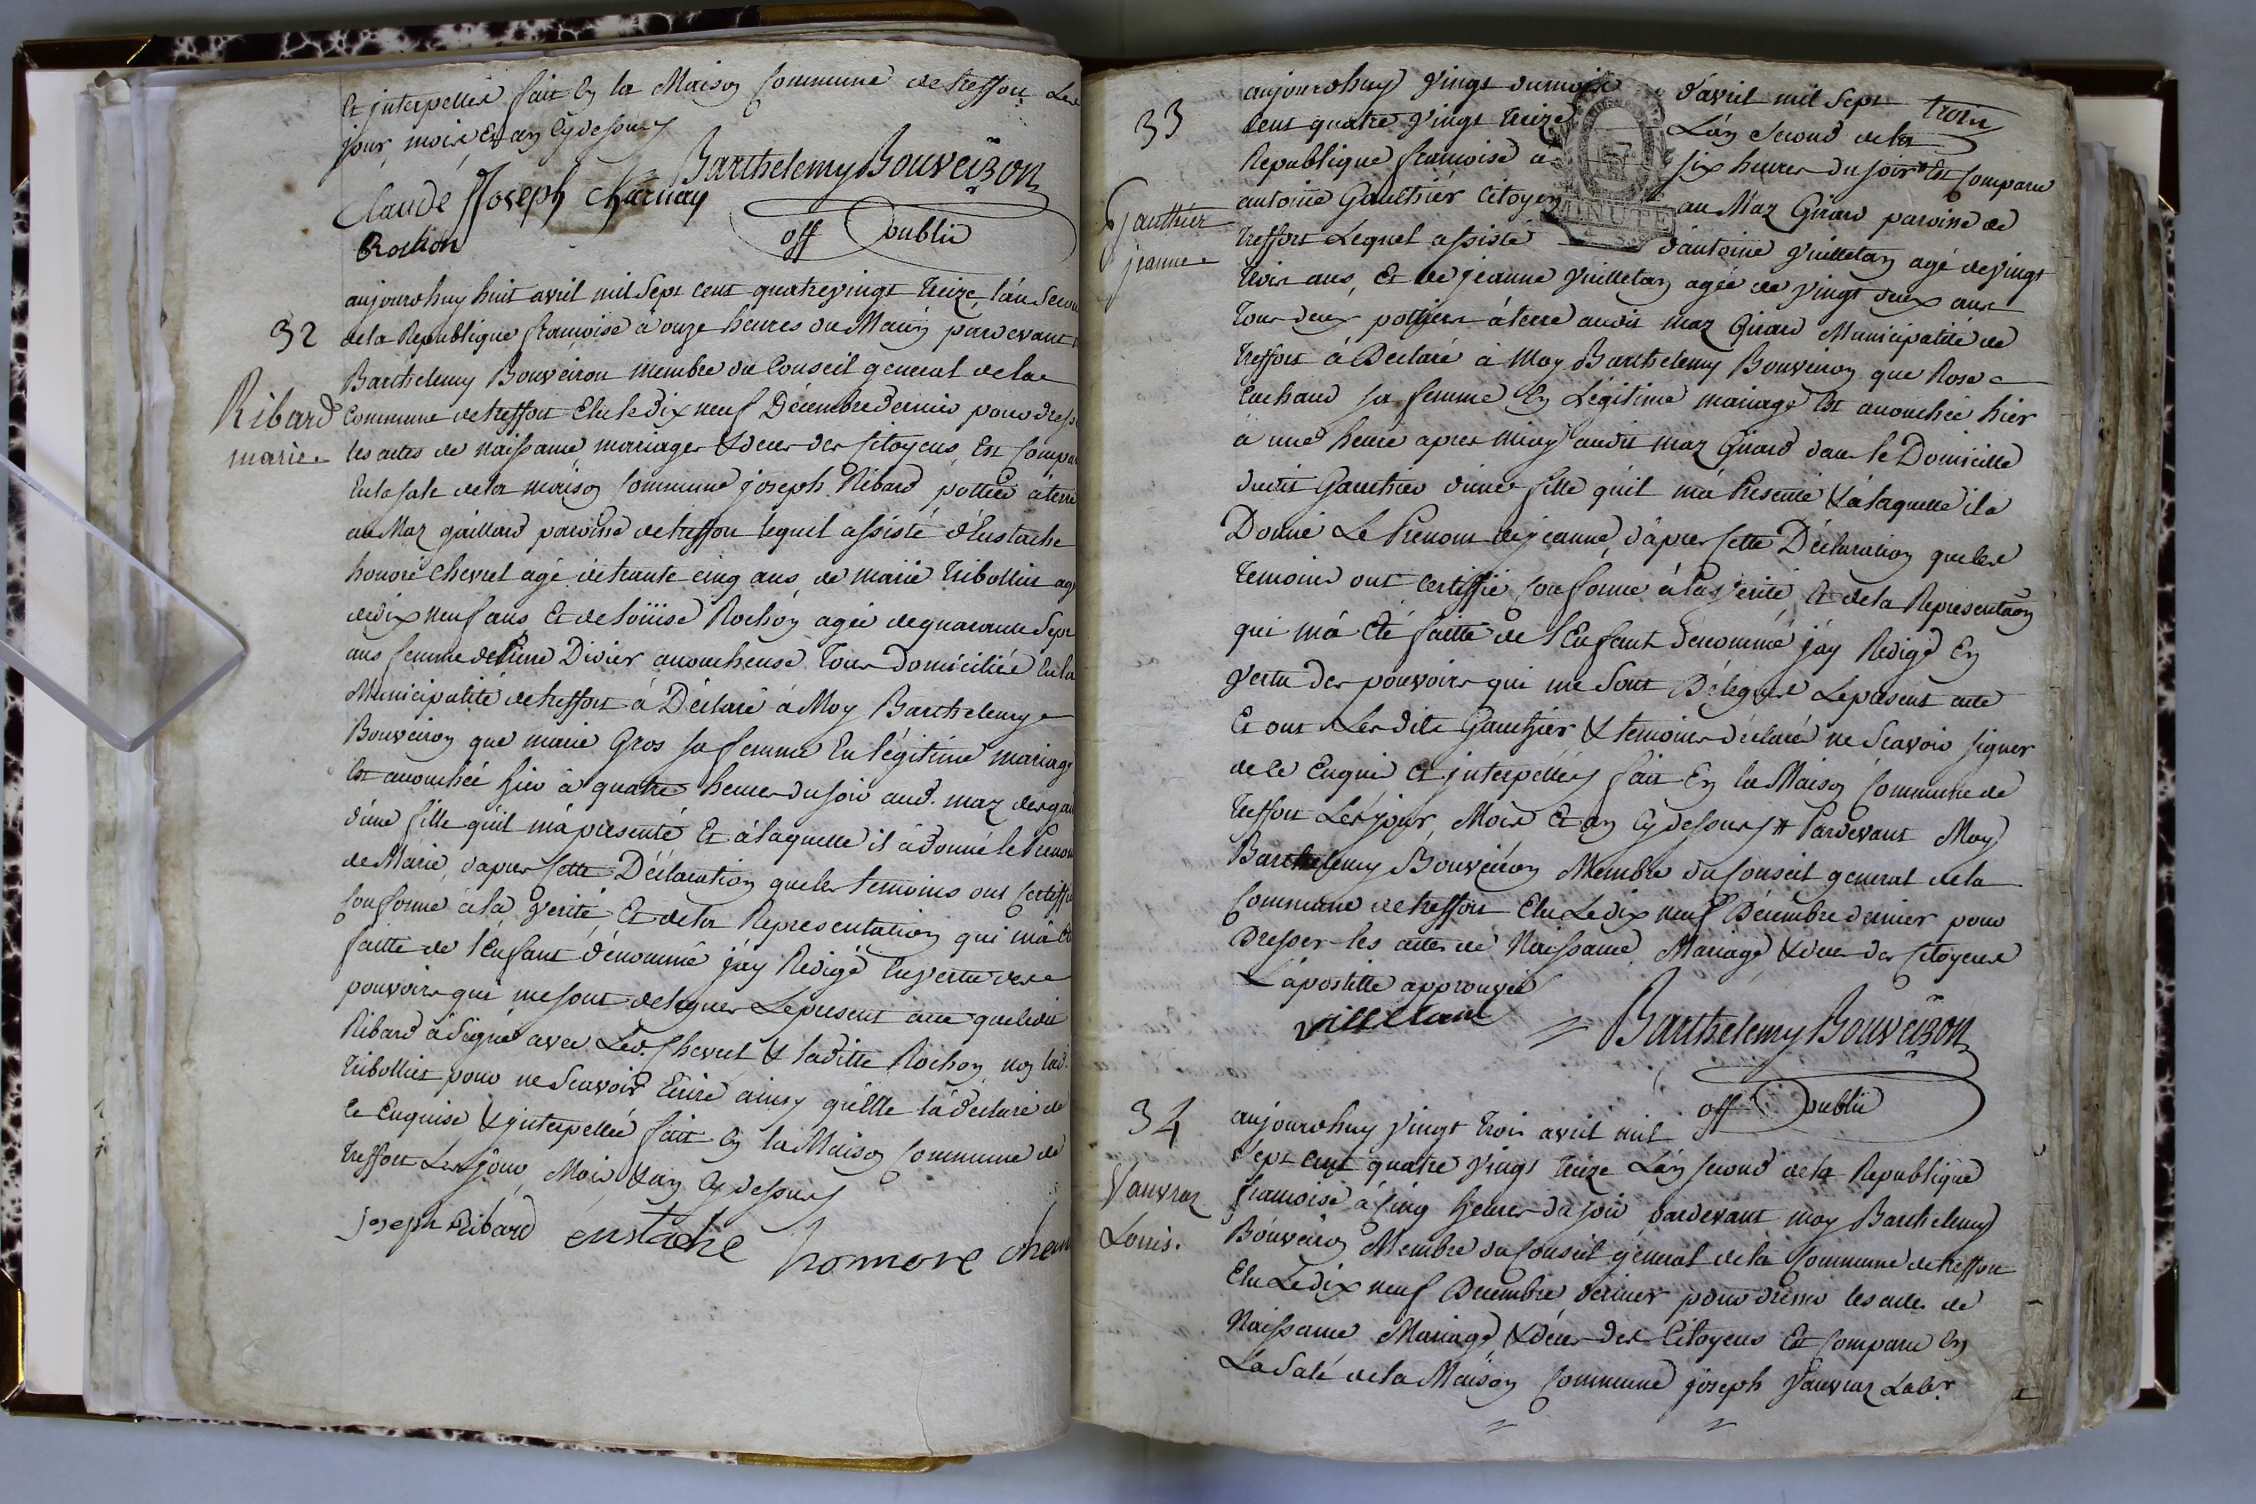 Et interpellée fait En la Maison Commune de treffort Les
jour, mois Et an Cy dessus
Barthelemy Bouveiron
Claude Joseph Charnay
Rochon
off public
32
Ribard
marie.
aujourdhuy huit avril mil Sept cent quatrevingt treize, l'an Second
de la Republique francoise à onze heures du Matin pardevant
Barthelemy Bouveiron membre du Conseil general de la
Commune de treffort Elu le dix neuf Décembre dernier pour
les actes de naissance mariages & deces des Citoyens, Est
En la sale de la maison Commune joseph Ribard pottier à terre
au Maz gaillard paroisse de treffort lequel assisté d'Eustache
honoré Chevret agé de trante cinq ans, de marie tribollet
de dix neuf ans Et de Loüise Rochon agée de quarante Sept
ans femme de Divier accoucheuse tous domiciliés En la
Municipalité de treffort à Déclaré à Moy Barthelemy
Bouveiron que marie Gros sa femme En légitime mariage
Est accouchée hier à quatre heures du soir aud. maz
d'une fille quil m'a presenté Et à laquelle il à donné le Prenom
de Marie, d'apres Cette Déclaration que les temoins ont Certiffié
Conforme à la verité Et de la Representation qui m'a
faitte de l'Enfant dénommé j'ay Redigé En vertu des
pouvoirs qui me sont delegues Le present acte que ledit
Ribard à Signé avec Led. Chevret & laditte Rochon non lad.
tribollet pour ne Scavoir Ecrire ainsy qu'Elle l'a declaré de
ce Enquise & interpellée fait En la Maison Commune de
treffort Les jour, Mois & an Cy dessus
joseph Ribard eustache honnore
33
Gauthier
jeanne
aujourdhuy vingt du mois d'avril mil Sept
trois
Cent quatre vingt treize L'an Second de la
Republique francoise a six heures du soir # Est Comparu
antoine Gauthier Citoyen au Maz Girard paroisse de
MINUTE
treffort Lequel assisté d'antoine vuilletan agé de vingt
trois ans, Et de jeanne vuilletan agée de vingt deux ans
tous deux pottiers à terre audit maz Girard Municipalité de
treffort à Declaré à Moy Barthelemy Bouveiron que Rose
sa femme En Légitime mariage Est accouchée hier
à une heure apres midy audit maz Girard dans le Domicille
dudit Gauthier d'une fille qu'il m'a Presenté & à laquelle il a
Donné Le Prenom de jeanne, d'apres Cette Déclaration que les
temoins ont Certiffié Conforme à la verité, Et de la Representaōn
qui m'a Eté faitte de l'Enfant dénommé j'ay Redigé En
vertu des pouvoirs qui me Sont Délegues Le present acte
Et ont Lesdits Gauthier & temoins déclaré ne Scavoir signer
de ce Enquis Et interpellés fait En la Maison Commune de
treffort Les jour, Mois Et an Cy dessus # Pardevant Moy
Barthelemy Bouveiron Membre du Conseil general de la
Commune de treffort Elu Le dix neuf Décembre dernier pour
Dresser les actes de Naissance, Mariage, & deces des Citoyens
L'apostille approuvée
Barthelemy Bouveiron
off public
34
Vauvraz
Louis.
aujourdhuy vingt trois avril mil
Sept cent quatre vingt treize L'an second de la Republique
francoise à Cinq heures du soir pardevant moy Barthelemy
Bouveiron Membre du Conseil general de la Commune de treffort
Elu Le dix neuf Decembre dernier pour dresser les actes de
Naissance, Mariage, & déces des Citoyens Est Comparu En
La Sale de la Maison Commune joseph Vauvraz Labr.